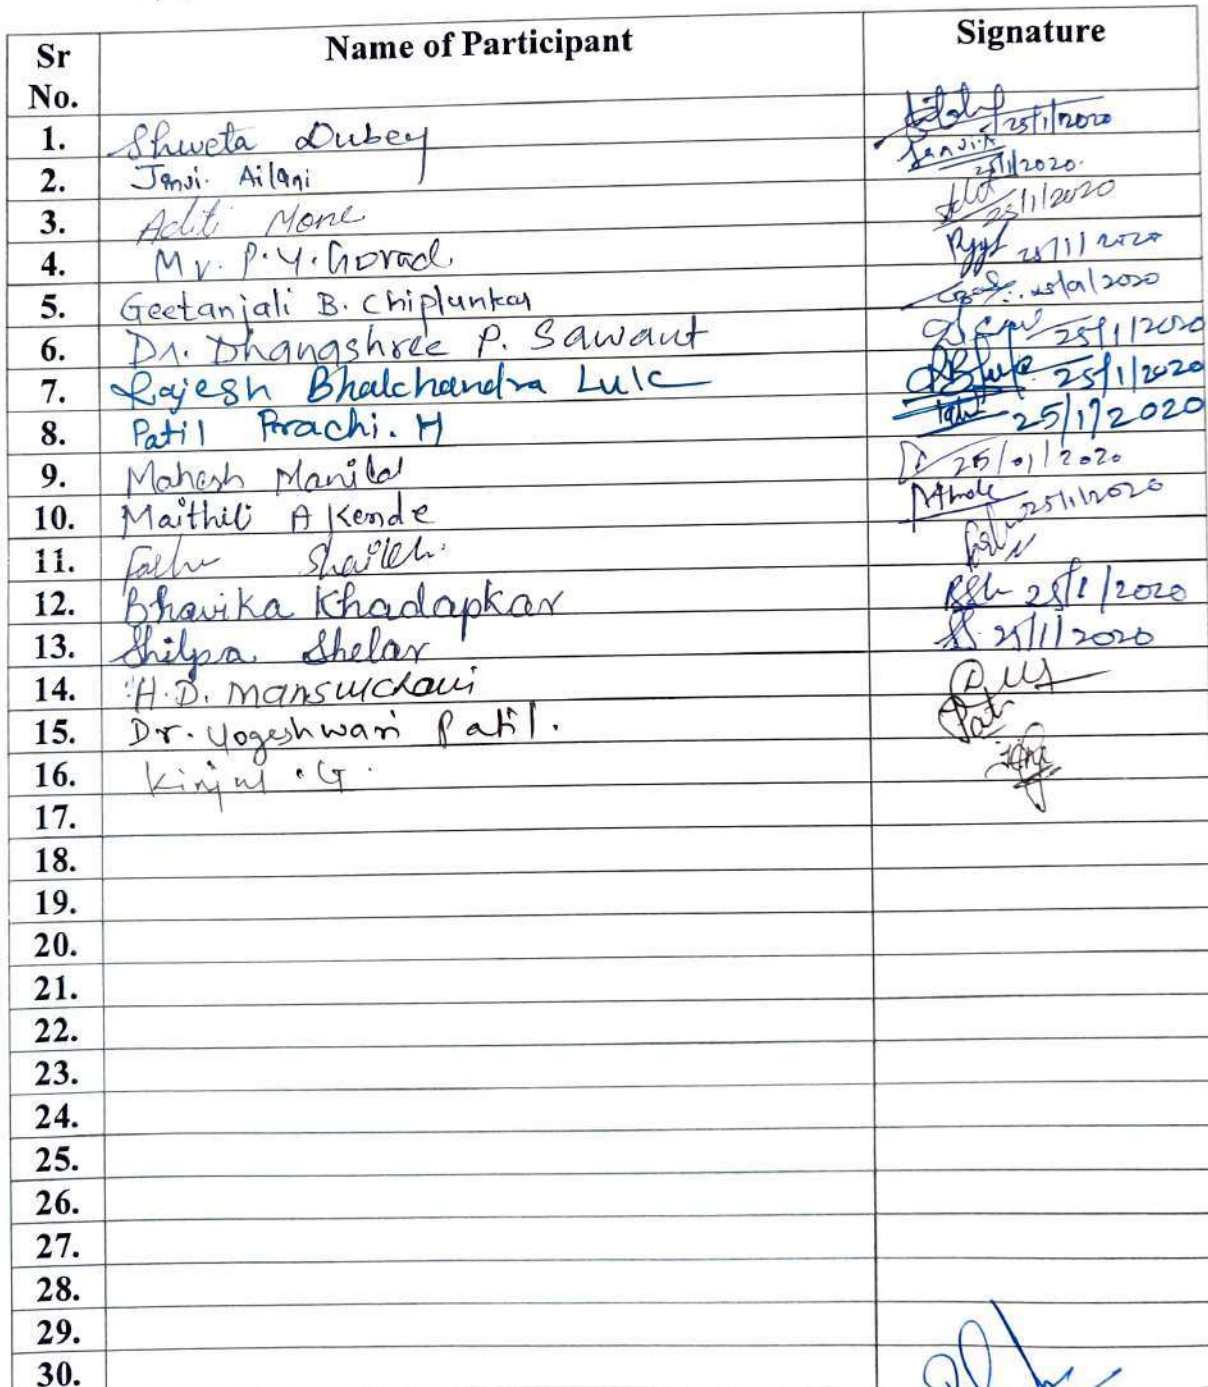 Sr No. Name of Participant Signature
1. Shweta Dubey 25/1/2020
2. Janvi. Ailani Janvi.A 25/1/2020.
3. Aditi Mone 25/1/2020
4. Mr. P. Y. Gorad 25/1/2020
5. Geetanjali B. Chiplunkar 25/01/2020
6. Dr. Dhanashree P. Sawant 25/1/2020
7. Rajesh Bhalchandra Lule 25/1/2020
8. Patil Prachi. H 25/1/2020
9. Mahesh 25/01/2020
10. Maithili A Kende 25/1/2020
11. Shaikh.
12. Bhavika Khadapkar 25/1/2020
13. Shilpa Shelar 25/1/2020
14. H.D. Mansukhani
15. Dr. Yogeshwari Patil.
16. Kinjal . G .
17.
18.
19.
20.
21.
22.
23.
24.
25.
26.
27.
28.
29.
30.